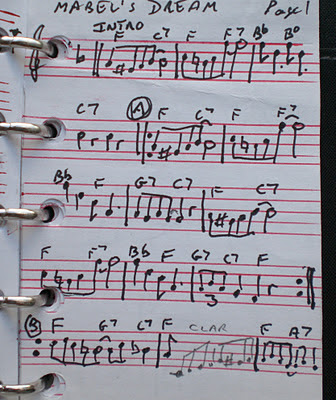 MABEL'S DREAM Page 1
INTRO F C7 F F7 Bb Bo
C7 A F C7 F F7
Bb F G7 C7 F C7
F F7 Bb F G7 C7 F
3
B F G7 C7 F CLAR F A7